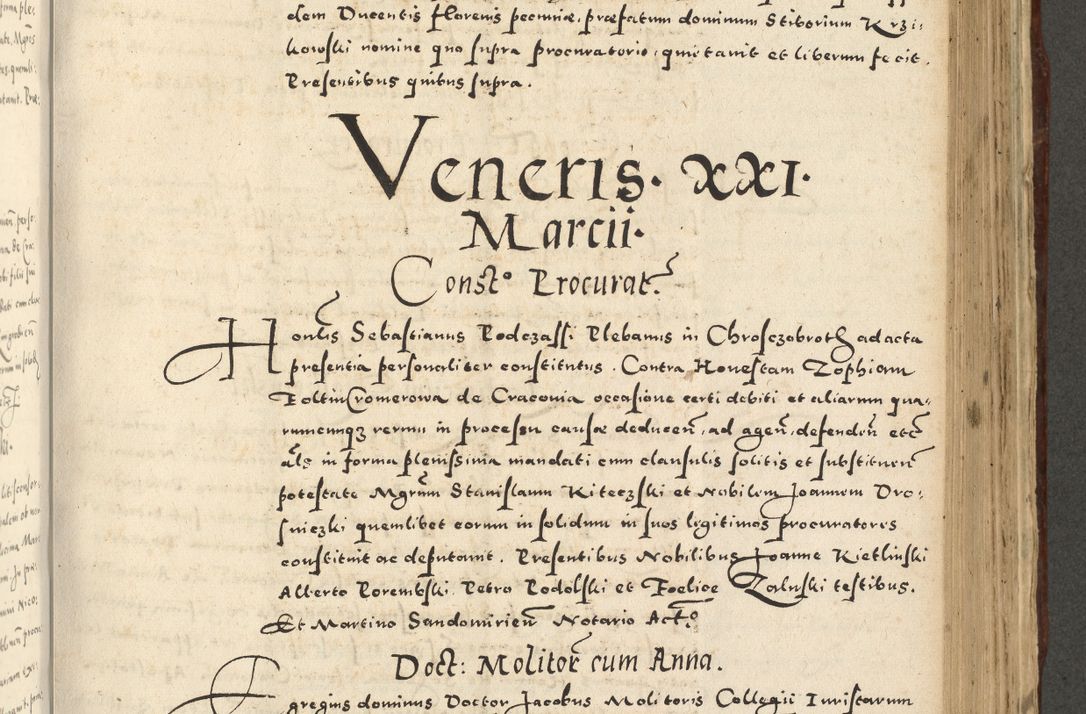 dem Ducentis florenis pecuniæ, præfatum dominum Stiborium Krzi-
kowski nomine quo supra procuratorio, quietauit et liberum fecit.
Presentibus quibus supra.
Veneris. XXI.
Marcii.
Const^o Procurat.
Honlis Sebastianus Rodczassi Plebanus in Chrosczobroth ad acta
presentia personaliter constitutus. Contra Honestam Zophiam
Foltin Cromerowa de Cracouia occasione certi debiti et aliarum qua-
rumcunq3 rerum in processu causæ deducen, ad agen, defenden etc
als in forma plenissima mandati cum clausulis solitis et substituen
potestate Mgrum Stanislaum Kiteczski et Nobilem Joannem Dro-
sniczki quemlibet eorum in solidum in suos legitimos procuratores
constituit ac deputauit. Presentibus Nobilibus Joanne Kietlinski
Alberto Porembski. Petro Podolski et Foelice Zaluski testibus.
Et Martino Sandomirien Notario Act^o
Doct: Molitor cum Anna.
Egregius dominus Doctor Jacobus Molitoris Collegii Iuristarum